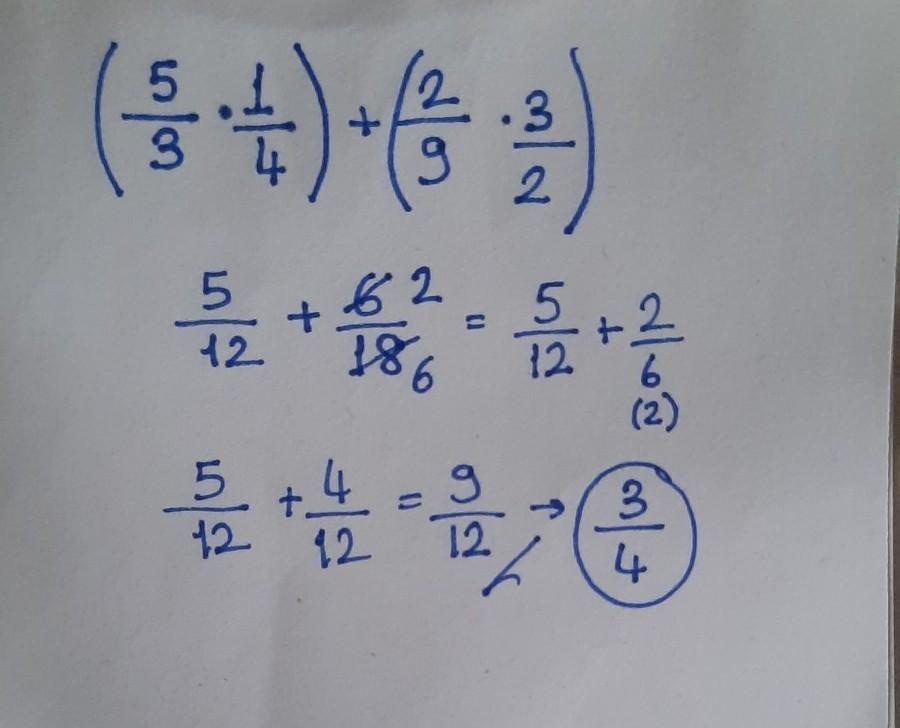 (5/3 · 1/4) + (2/9 · 3/2)
5/12 + 6/18 2/6 = 5/12 + 2/6 (2)
5/12 + 4/12 = 9/12 → 3/4